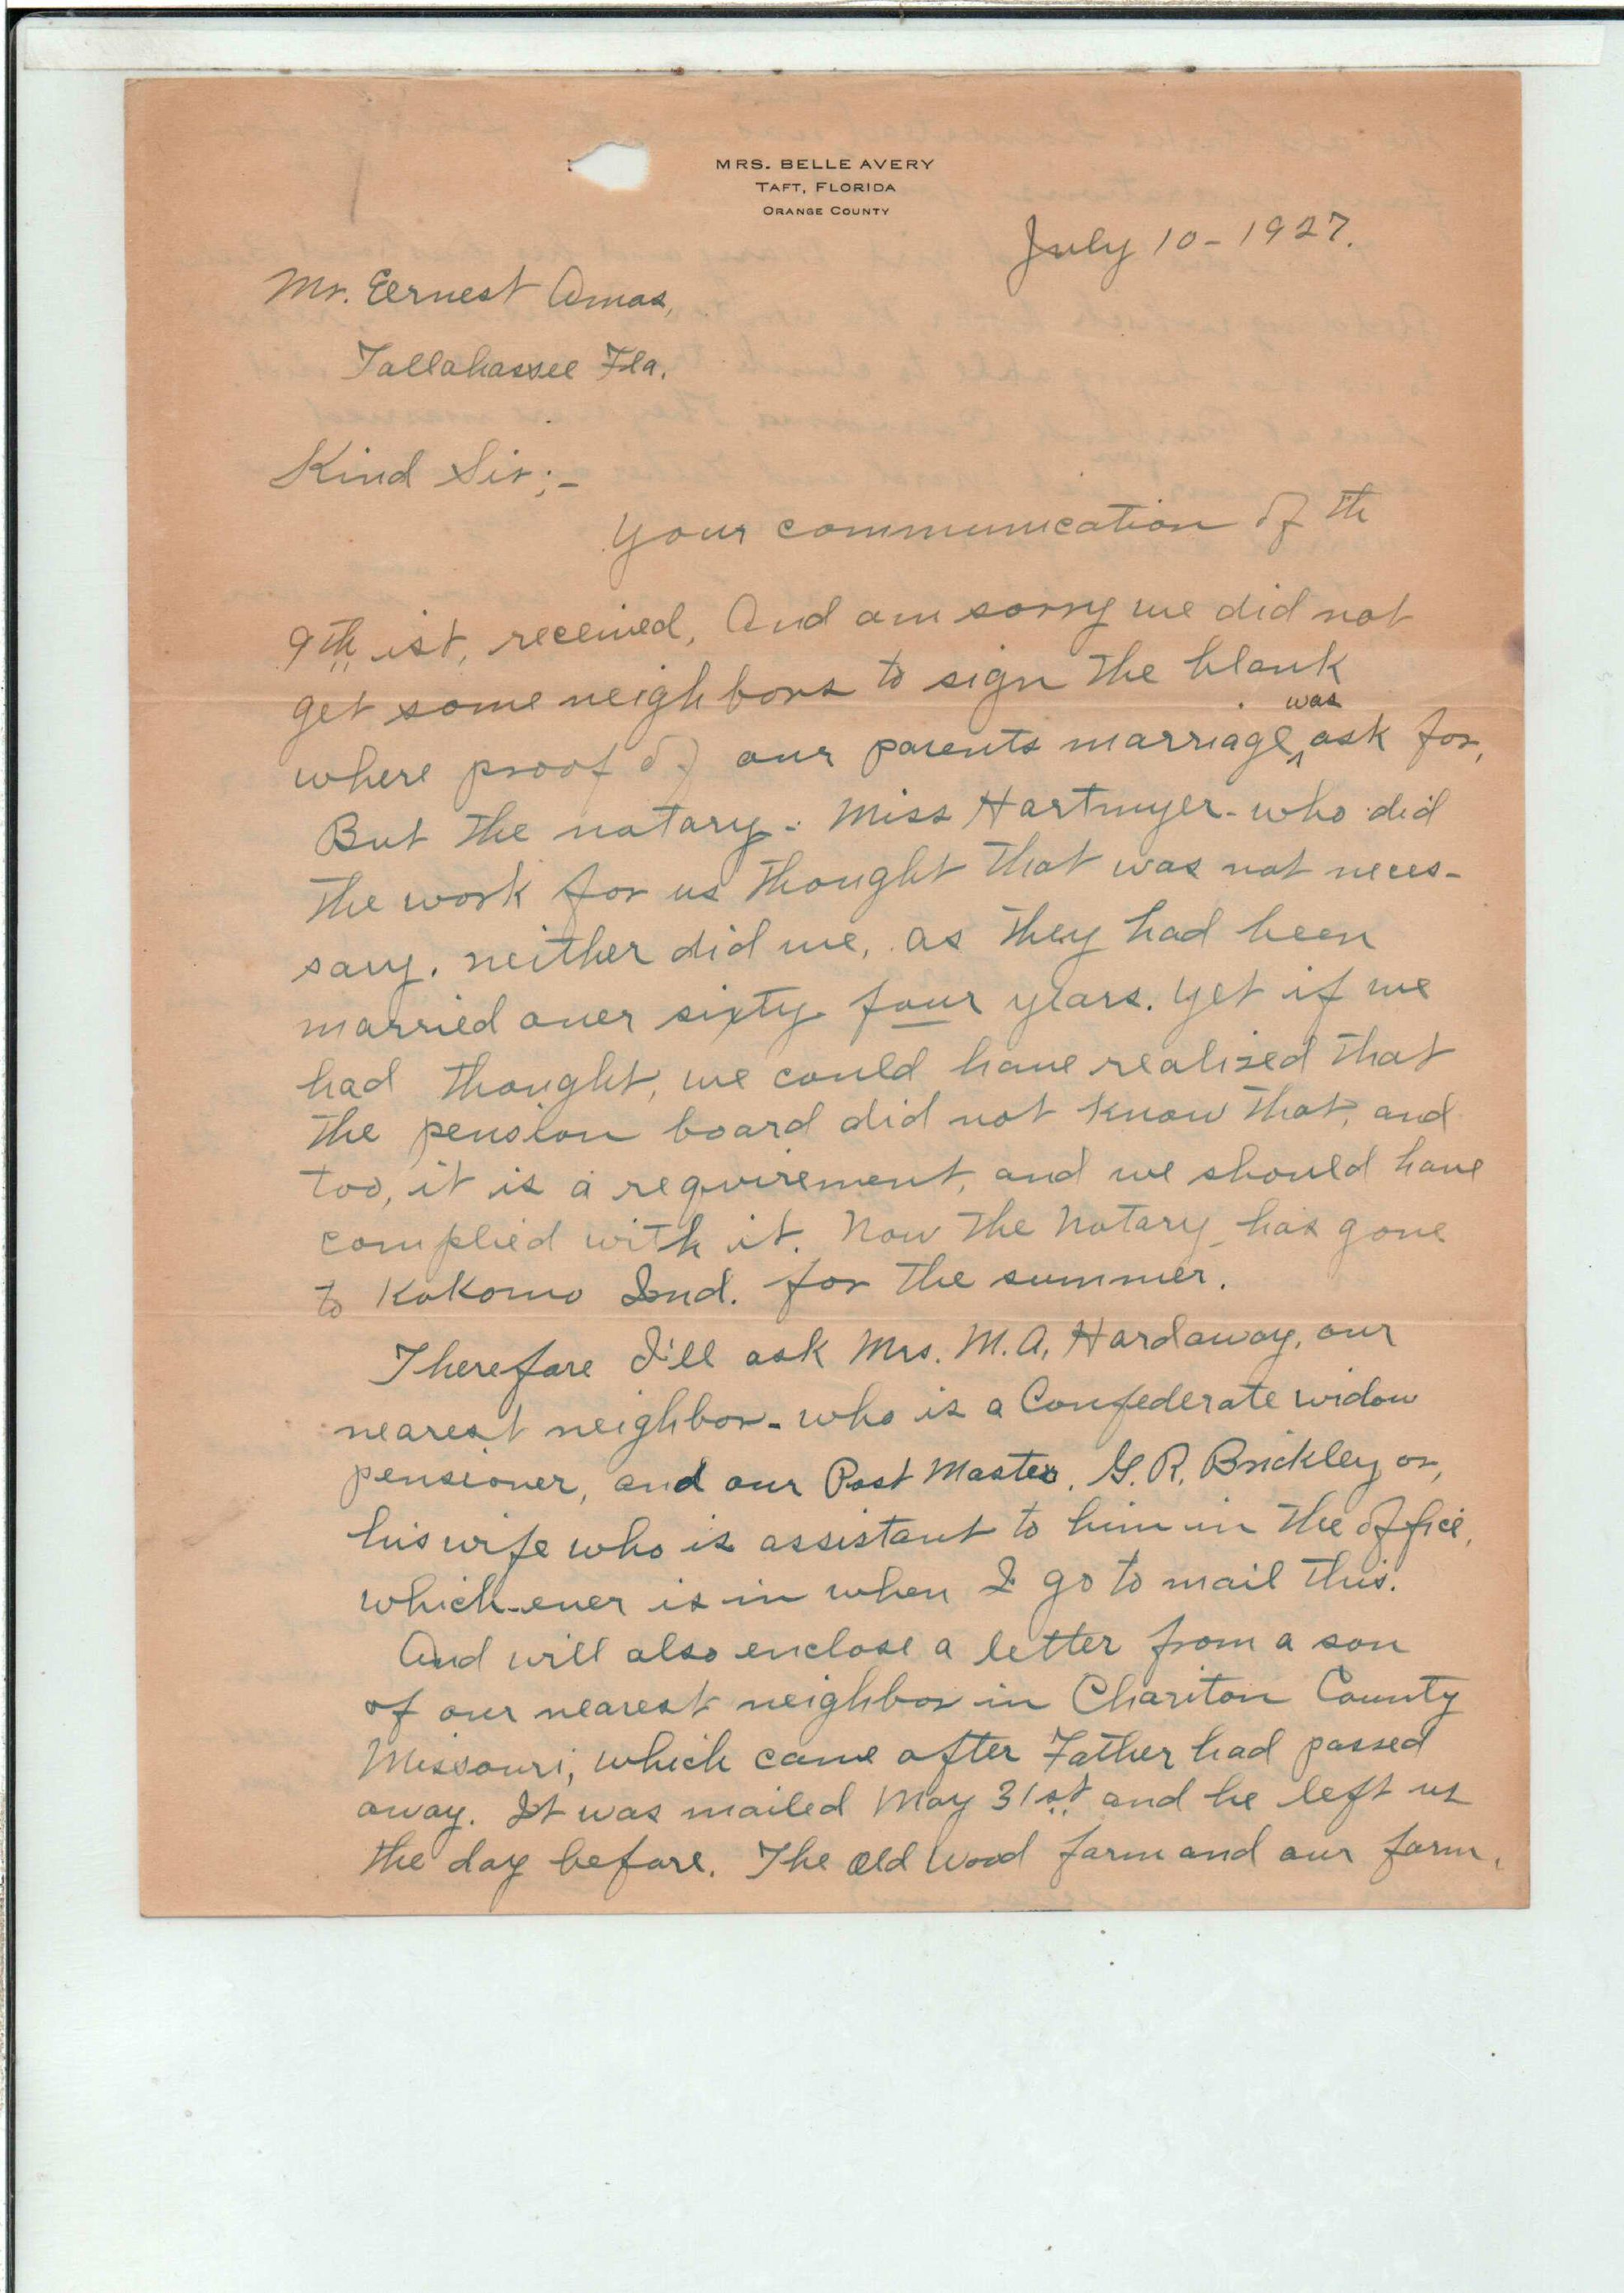 MRS. BELLE AVERY
TAFT, FLORIDA
ORANGE COUNTY
July 10 - 1927.
Mr. Eernest Amos,
Tallahassee Fla.
Kind Sir;-
Your communication of th
9th ist, received, And am sorry we did not
get some neighbors to sign the blank
where proof of our parents marriage was ask for,
But the notary - Miss Hartmyer - who did
the work for us thought that was not neces-
sary. neither did we, as they had been
married over sixty four years. yet if we
had thought, we could have realized that
the pension board did not know that, and
too, it is a requirement, and we should have
complied with it. Now the Notary has gone
to Kokomo Ind. for the summer.
Therefore I'll ask Mrs. M.A. Hardaway, our
nearest neighbor - who is a Confederate widow
pensioner, and our Post Master, G. R. Brickley or,
his wife who is assistant to him in the office,
which-ever is in when I go to mail this.
And will also enclose a letter from a son
of our nearest neighbor in Chariton County
Missouri, which came after Father had passed
away. It was mailed May 31st and he left us
the day before. The old Wood farm and our farm,